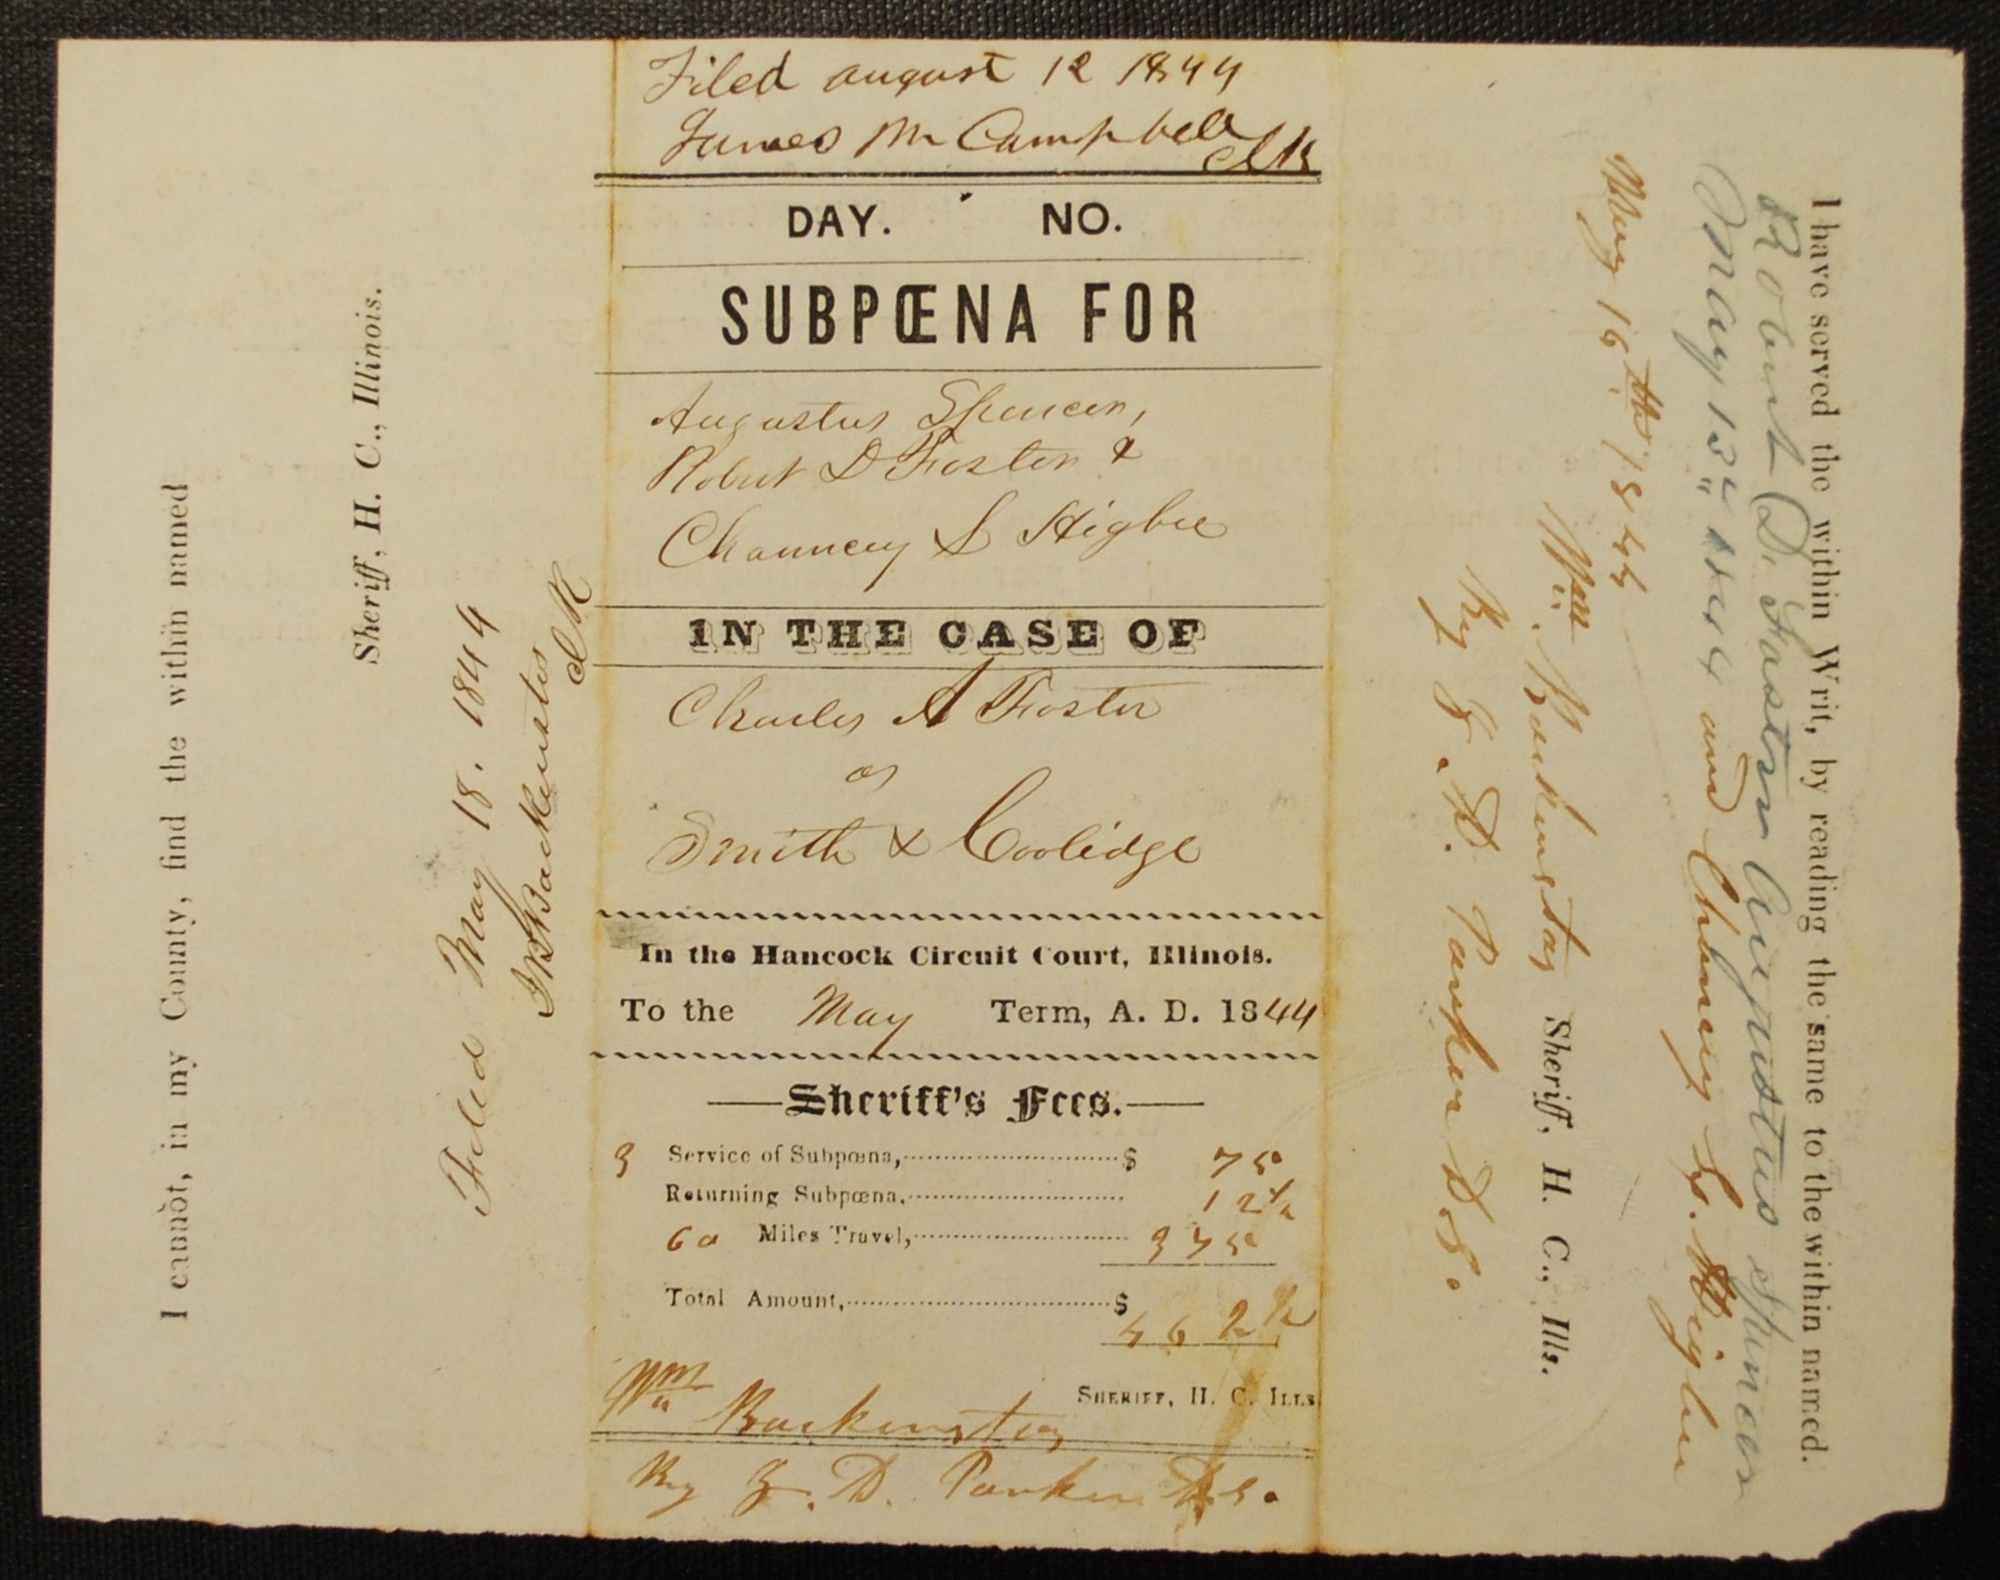 Filed august 12 1844
James M Campbell
Clk
DAY. NO.
SUBPŒNA FOR
Augustus Spencer,
Robert D Foster &
Chauncey L Higbee
IN THE CASE OF
Charles A Foster
as
Smith & Coolidge
In the Hancock Circuit Court, Illinois.
To the May Term, A. D. 1844
Sheriff's Fees.
3 Service of Subpœna, $ 75
Returning Subpœna, 12 1/2
60 Miles Travel, 3 75
Total Amount, $ 4 62 1/2
Wm Backenstos SHERIFF, H. C. ILLS
By J. D. Parker D.S.
I cannot, in my County, find the within named
Sheriff, H. C., Illinois.
Filed May 18. 1844
J B Backenstos
Clk
I have served the within Writ, by reading the same to the within named.
Robert D. Foster Augustus Spencer
May 13th 1844 and Chancey L. Higbee
May 16th 1844
Wm Backenstos Sheriff, H. C., Ills.
By J. D. Parker D.S.